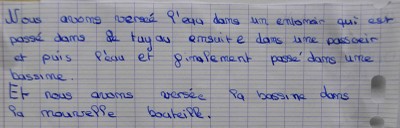 Nous avons versée l'eau dans un entonoir qui est
passé dans le tuyau ensuite dans une passoir
et puis l'eau et finalement passé dans une
bassine.
Et nous avons versée la bassine dans
la nouvelle bouteille.